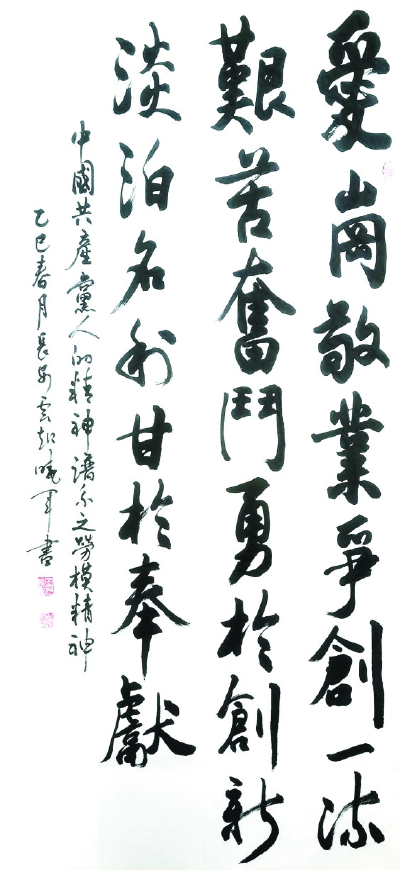 愛崗敬業爭創一流
艱苦奮鬥勇於創新
淡泊名利甘於奉獻
中國共產黨人的精神譜系之勞模精神
乙巳春月長安雲起曉軍書